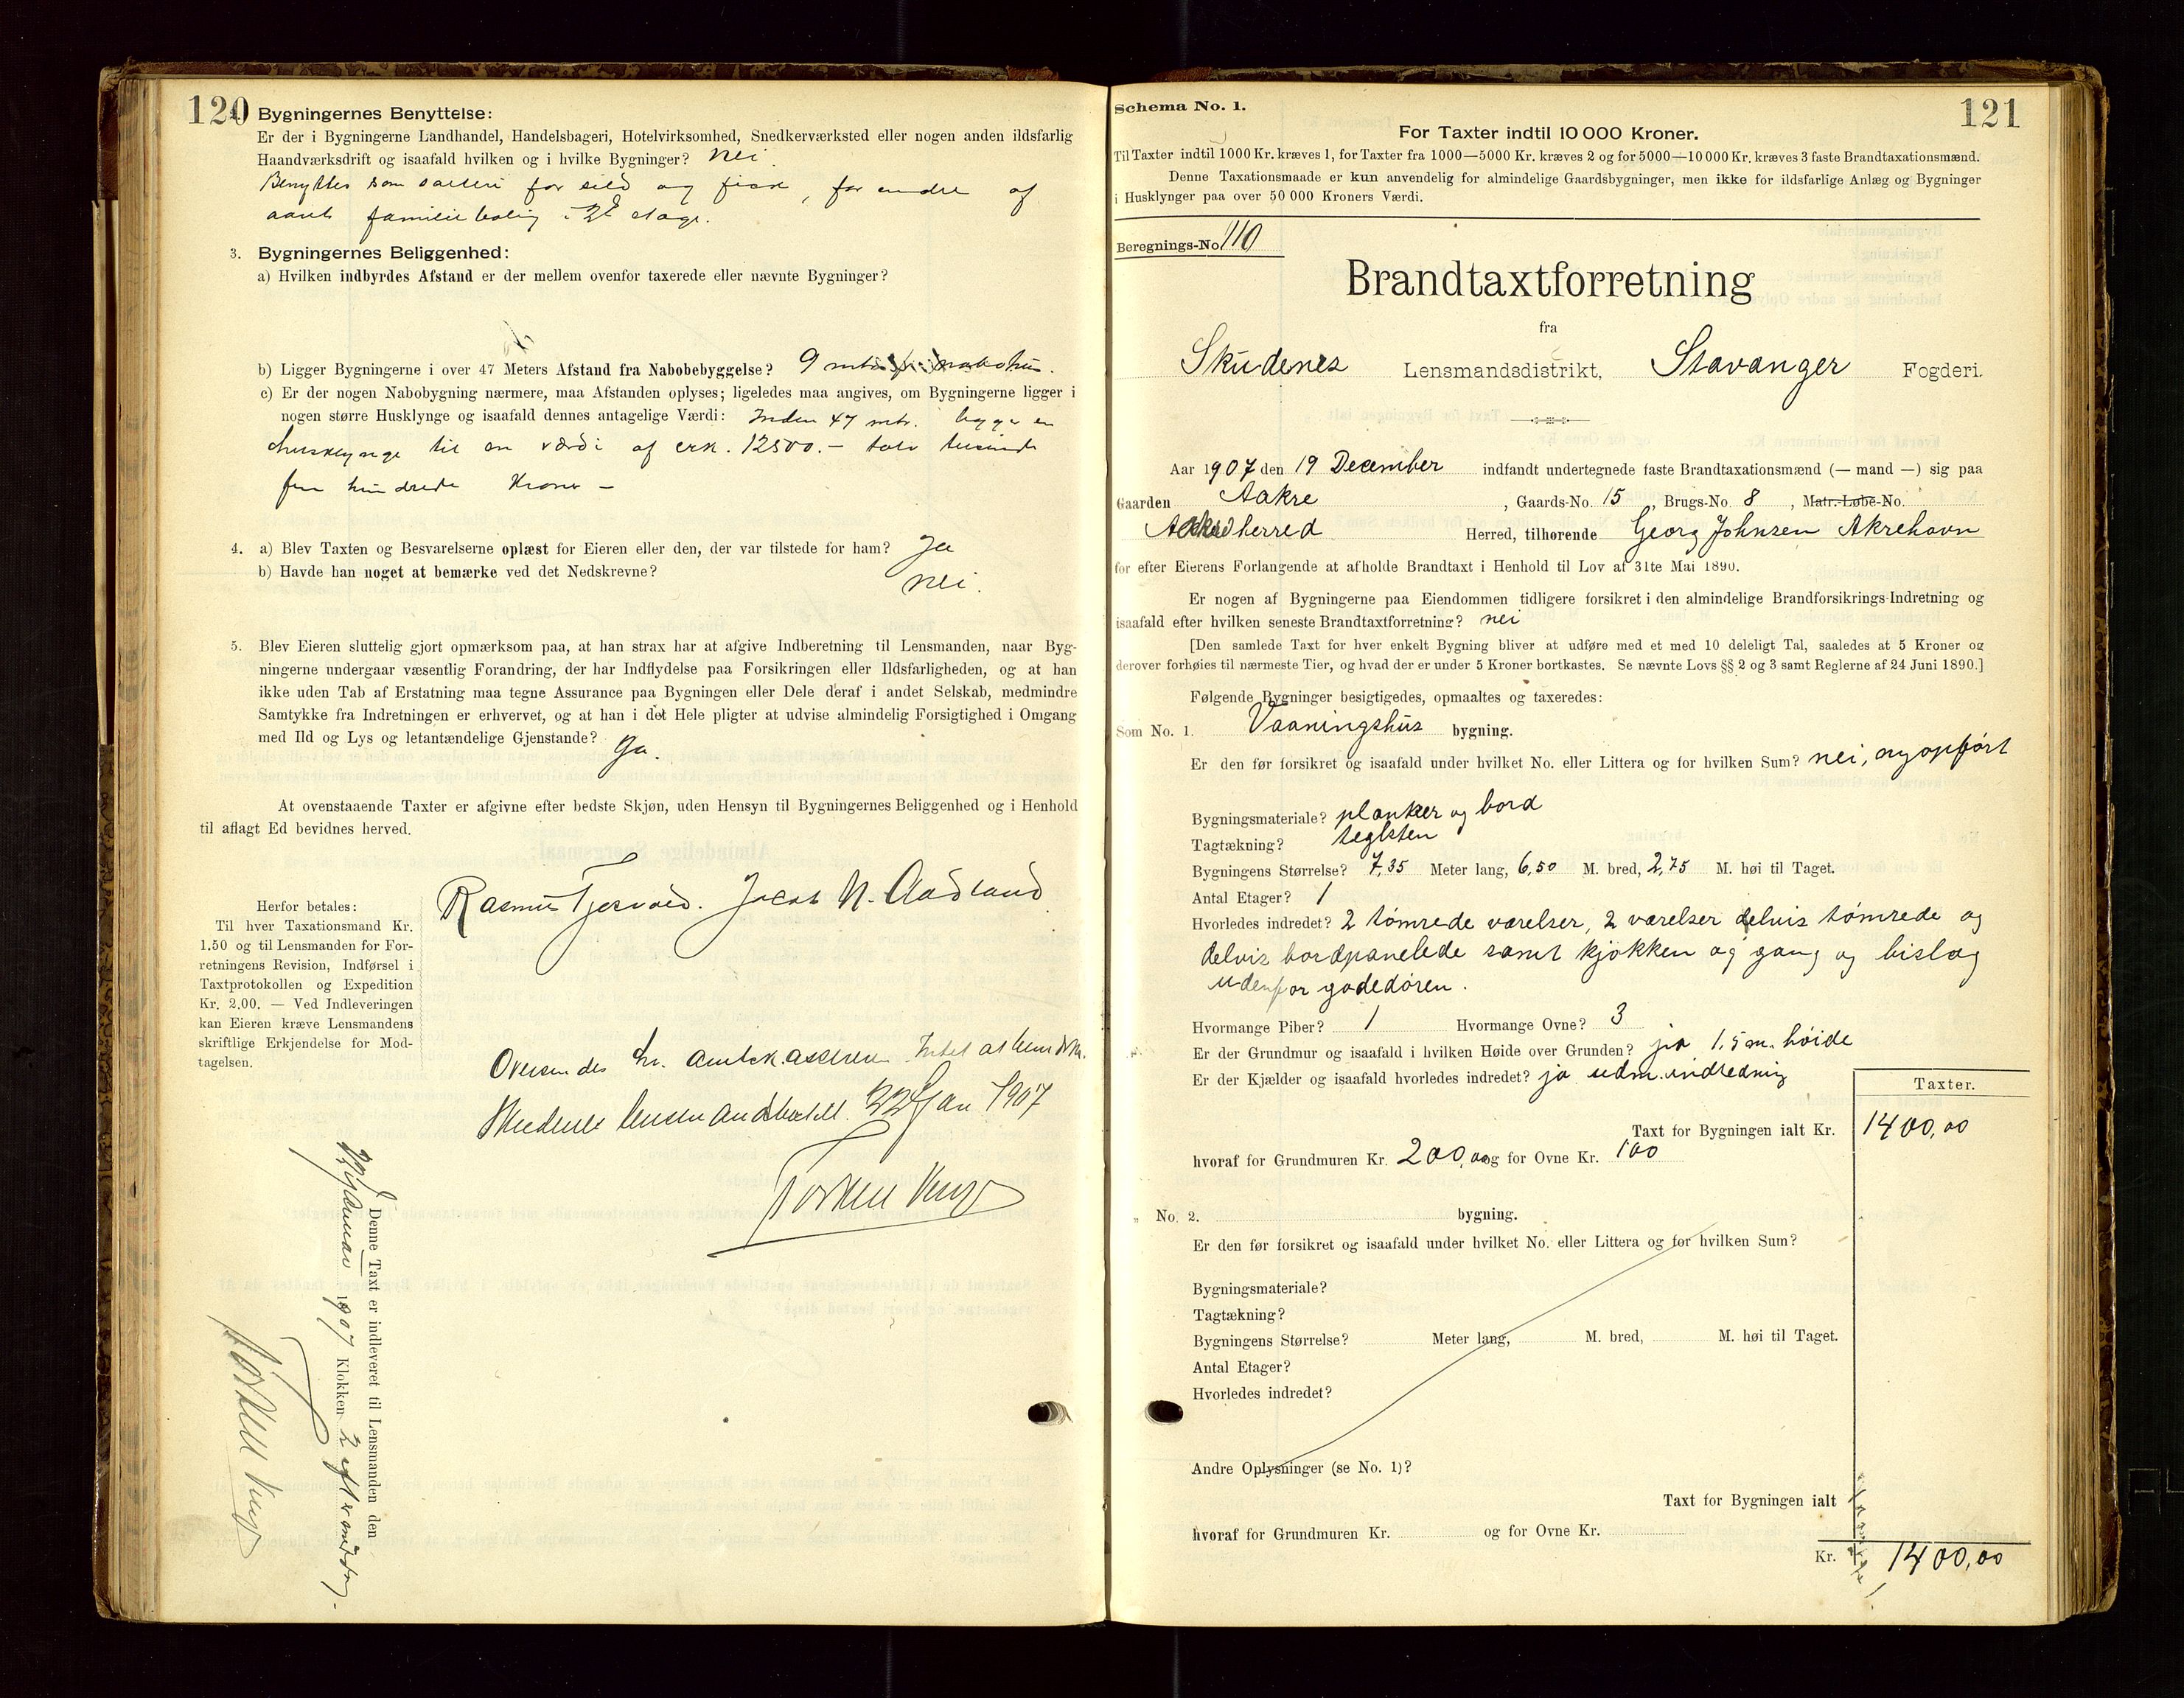 120
Bygningernes Benyttelse:
Er der i Bygningerne Landhandel, Handelsbageri, Hotelvirksomhed, Snedkerværksted eller nogen anden ildsfarlig
Haandværksdrift og isaafald hvilken og i hvilke Bygninger? nei.
Benyttes som salteri for sild og fisk, for endre af
aaret familiebolig i 2d etage.
3. Bygningernes Beliggenhed:
a) Hvilken indbyrdes Afstand er der mellem ovenfor taxerede eller nævnte Bygninger?
b) Ligger Bygningerne i over 47 Meters Afstand fra Nabobebyggelse? 9 mtr nabohus.
c) Er der nogen Nabobygning nærmere, maa Afstanden oplyses; ligeledes maa angives, om Bygningerne ligger i
nogen større Husklynge og isaafald dennes antagelige Værdi: Inden 47 mtr. ligger en
husklynge til en værdi af crk. 12500.- tolv tusinde
fem hundrede Kroner -
4. a) Blev Taxten og Besvarelserne oplæst for Eieren eller den, der var tilstede for ham? Ja
b) Havde han noget at bemærke ved det Nedskrevne? nei.
5. Blev Eieren sluttelig gjort opmærksom paa, at han strax har at afgive Indberetning til Lensmanden, naar Byg-
ningerne undergaar væsentlig Forandring, der har Indflydelse paa Forsikringen eller Ildsfarligheden, og at han
ikke uden Tab af Erstatning maa tegne Assurance paa Bygningen eller Dele deraf i andet Selskab, medmindre
Samtykke fra Indretningen er erhvervet, og at han i det Hele pligter at udvise almindelig Forsigtighed i Omgang
med Ild og Lys og letantændelige Gjenstande? Ja.
At ovenstaaende Taxter er afgivne efter bedste Skjøn, uden Hensyn til Bygningernes Beliggenhed og i Henhold
til aflagt Ed bevidnes herved.
Rasmus Tjosvold. Jacob N. Aadland
Herfor betales:
Til hver Taxationsmand Kr.
1.50 og til Lensmanden for For-
retningens Revision, Indførsel i
Taxtprotokollen og Expedition
Kr. 2.00. — Ved Indleveringen
kan Eieren kræve Lensmandens
skriftlige Erkjendelse for Mod-
tagelsen.
Oversendes hr. amtskassereren. Intet at bemærke.
Skudenes lensmandsbestill. 22 Jan 1907
Torkell
Denne Taxt er indleveret til Lensmanden den
Januar 1907 Klokken 2 eftermiddag.
Torkell
Schema No. 1.
121
For Taxter indtil 10 000 Kroner.
Til Taxter indtil 1000 Kr. kræves 1, for Taxter fra 1000—5000 Kr. kræves 2 og for 5000—10 000 Kr. kræves 3 faste Brandtaxationsmænd.
Denne Taxationsmaade er kun anvendelig for almindelige Gaardsbygninger, men ikke for ildsfarlige Anlæg og Bygninger
i Husklynger paa over 50 000 Kroners Værdi.
Beregnings-No 110
Brandtaxtforretning
fra
Skudenes Lensmandsdistrikt, Stavanger Fogderi.
Aar 1907 den 19 December indfandt undertegnede faste Brandtaxationsmænd (— mand —) sig paa
Gaarden Aakre, Gaards-No. 15, Brugs-No. 8, Matr.-Løbe-No.
herred Herred, tilhørende Georg Johnsen Akrehavn
for efter Eierens Forlangende at afholde Brandtaxt i Henhold til Lov af 31te Mai 1890.
Er nogen af Bygningerne paa Eiendommen tidligere forsikret i den almindelige Brandforsikrings-Indretning og
isaafald efter hvilken seneste Brandtaxtforretning? nei
[Den samlede Taxt for hver enkelt Bygning bliver at udføre med et med 10 deleligt Tal, saaledes at 5 Kroner og
derover forhøies til nærmeste Tier, og hvad der er under 5 Kroner bortkastes. Se nævnte Lovs §§ 2 og 3 samt Reglerne af 24 Juni 1890.]
Følgende Bygninger besigtigedes, opmaaltes og taxeredes:
Som No. 1. Vaaningshus bygning.
Er den før forsikret og isaafald under hvilket No. eller Littera og for hvilken Sum? nei, nyopført
Bygningsmateriale? planker og bord
Tagtækning? teglsten
Bygningens Størrelse? 7,35 Meter lang, 6,50 M. bred, 2,75 M. høi til Taget.
Antal Etager? 1
Hvorledes indredet? 2 tømrede værelser, 2 værelser delvis tømrede og
delvis bordpanelede samt kjøkken og gang og bislag
udenfor gadedøren.
Hvormange Piber? 1 Hvormange Ovne? 3
Er der Grundmur og isaafald i hvilken Høide over Grunden? ja 1,5 m. høide
Er der Kjælder og isaafald hvorledes indredet? ja udm. indredning
Taxter.
Taxt for Bygningen ialt Kr. 1400,00
hvoraf for Grundmuren Kr. 200,00 og for Ovne Kr. 100
„ No. 2. bygning.
Er den før forsikret og isaafald under hvilket No. eller Littera og for hvilken Sum?
Bygningsmateriale?
Tagtækning?
Bygningens Størrelse? Meter lang, M. bred, M. høi til Taget.
Antal Etager?
Hvorledes indredet?
Andre Oplysninger (se No. 1)?
Taxt for Bygningen ialt
hvoraf for Grundmuren Kr. og for Ovne Kr.
Kr. 1400,00